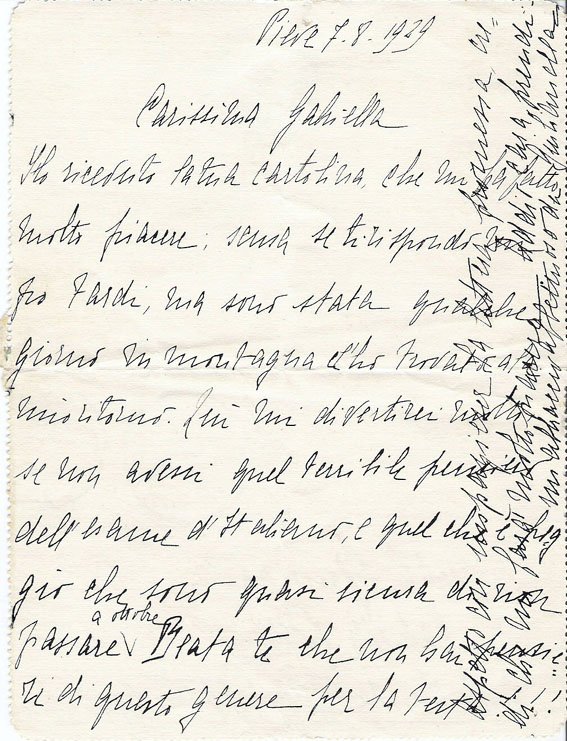 Pieve 7.8.1929
Carissima Gabriella
Ho ricevuto la tua cartolina, che mi ha fatto
molto piacere; scusa se ti rispondo
po tardi, ma sono stata qualche
giorno in montagna e l'ho trovata al
mio ritorno. Qui mi divertirei molto
se non avessi quel terribile pensiero
dell'esame d'Italiano, e quel che è peg
gio che sono quasi sicura di non
passare a ottobre. Beata te che non hai pensie
ri di questo genere per la testa!!
Aspetto con la tua promessa
che mi farà molto piacere
un abbraccio affettuoso da